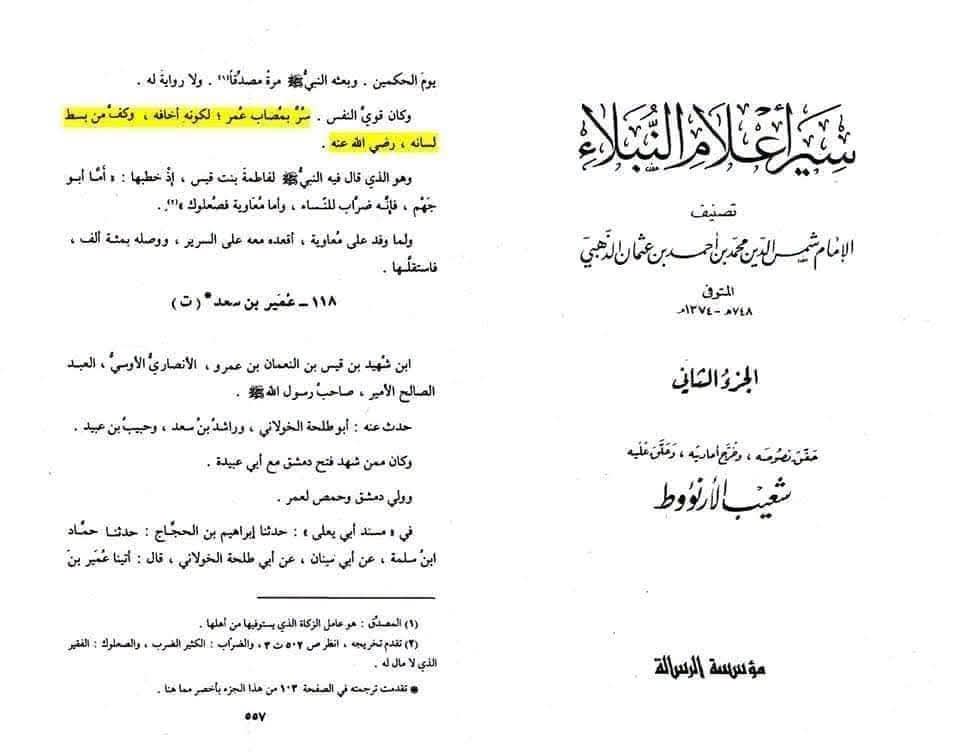 سير أعلام النبلاء
تصنيف
الإمام شمس الدين محمد بن أحمد بن عثمان الذهبي
المتوفى
٧٤٨هـ - ١٣٧٤م
الجزء الثاني
حقق نصوصه ، وخرج أحاديثه ، وعلق عليه
شعيب الأرنؤوط
مؤسسة الرسالة
يومَ الحكمين . وبعثه النبيُّ ﷺ مرةً مصدِّقاً(١) . ولا روايةَ له .
وكان قويَّ النفس . سُرَّ بمُصاب عُمر ؛ لكونه أخافه ، وكفَّ من بسط
لسانه ، رضي الله عنه .
وهو الذي قال فيه النبيُّ ﷺ لفاطمةَ بنت قيس ، إذْ خطبها : « أمَّا أبو
جَهْم ، فإنَّه ضرَّاب للنِّساء ، وأما مُعَاوية فصُعلوك »(٢) .
ولما وفد على مُعاوية ، أقعده معه على السرير ، ووصله بمئة ألف ،
فاستقلَّها .
١١٨ - عُمَير بن سعد * ( ت )
ابن شُهيد بن قيس بن النعمان بن عمرو ، الأنصاريُّ الأوسيُّ ، العبد
الصالح الأمير ، صاحبُ رسول الله ﷺ .
حدث عنه : أبو طلحة الخولاني ، وراشدُ بنُ سعد ، وحبيبُ بن عبيد .
وكان ممن شهد فتح دمشق مع أبي عبيدة .
وولي دمشق وحمص لعمر .
في « مسند أبي يعلى » : حدثنا إبراهيم بن الحجَّاج : حدثنا حمَّاد
ابنُ سلمة ، عن أبي سِنان ، عن أبي طلحة الخولاني ، قال : أتينا عُمَير بنَ
(١) المصدِّق : هو عامل الزكاة الذي يستوفيها من أهلها .
(٢) تقدم تخريجه ، انظر ص ٥٠٢ ت ٣ ، والضرَّاب : الكثير الضرب ، والصعلوك : الفقير
الذي لا مال له .
* تقدمت ترجمته في الصفحة ١٠٣ من هذا الجزء بأخصر مما هنا .
٥٥٧